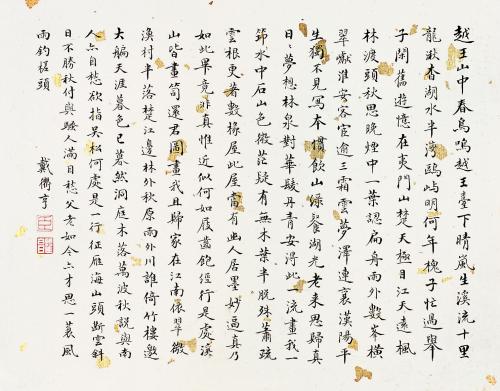 越王山中春鳥鳴越王臺下晴嵐生溪流十里
龍湫春湖水半灣鷗嶼明何年槐子忙過舉
子閑舊遊憶在夷門山楚天極目江天遠楓
林渡頭秋思晚煙中一葉認扁舟雨外數峯橫
翠巘淮安客宦逾三霜雲夢澤連襄漢陽平
生獨不見寫本慣飲山綠餐湖光老來思歸真
日日夢想林泉對華髮丹青安得此一流畫我一
笻水中石山色微茫疑有無木葉半脫殊蕭疏
雲根更著數椽屋此屋當有幽人居墨妙逼真乃
如此畢竟非真惟近似何如屐齒飽經行是處溪
山皆畫笥還君圖畫我且歸家在江南依翠微
溪村半落楚江邊林外秋原雨外川誰倚竹樓邀
大艑天涯暮色已暮然洞庭木落萬波秋說與南
人亦自愁欲指吳松何處是一行征雁海山頭斷雲斜
日不勝秋付與騷人滿目愁父老如今亦才思一蓑風
雨釣槎頭
戴衢亨